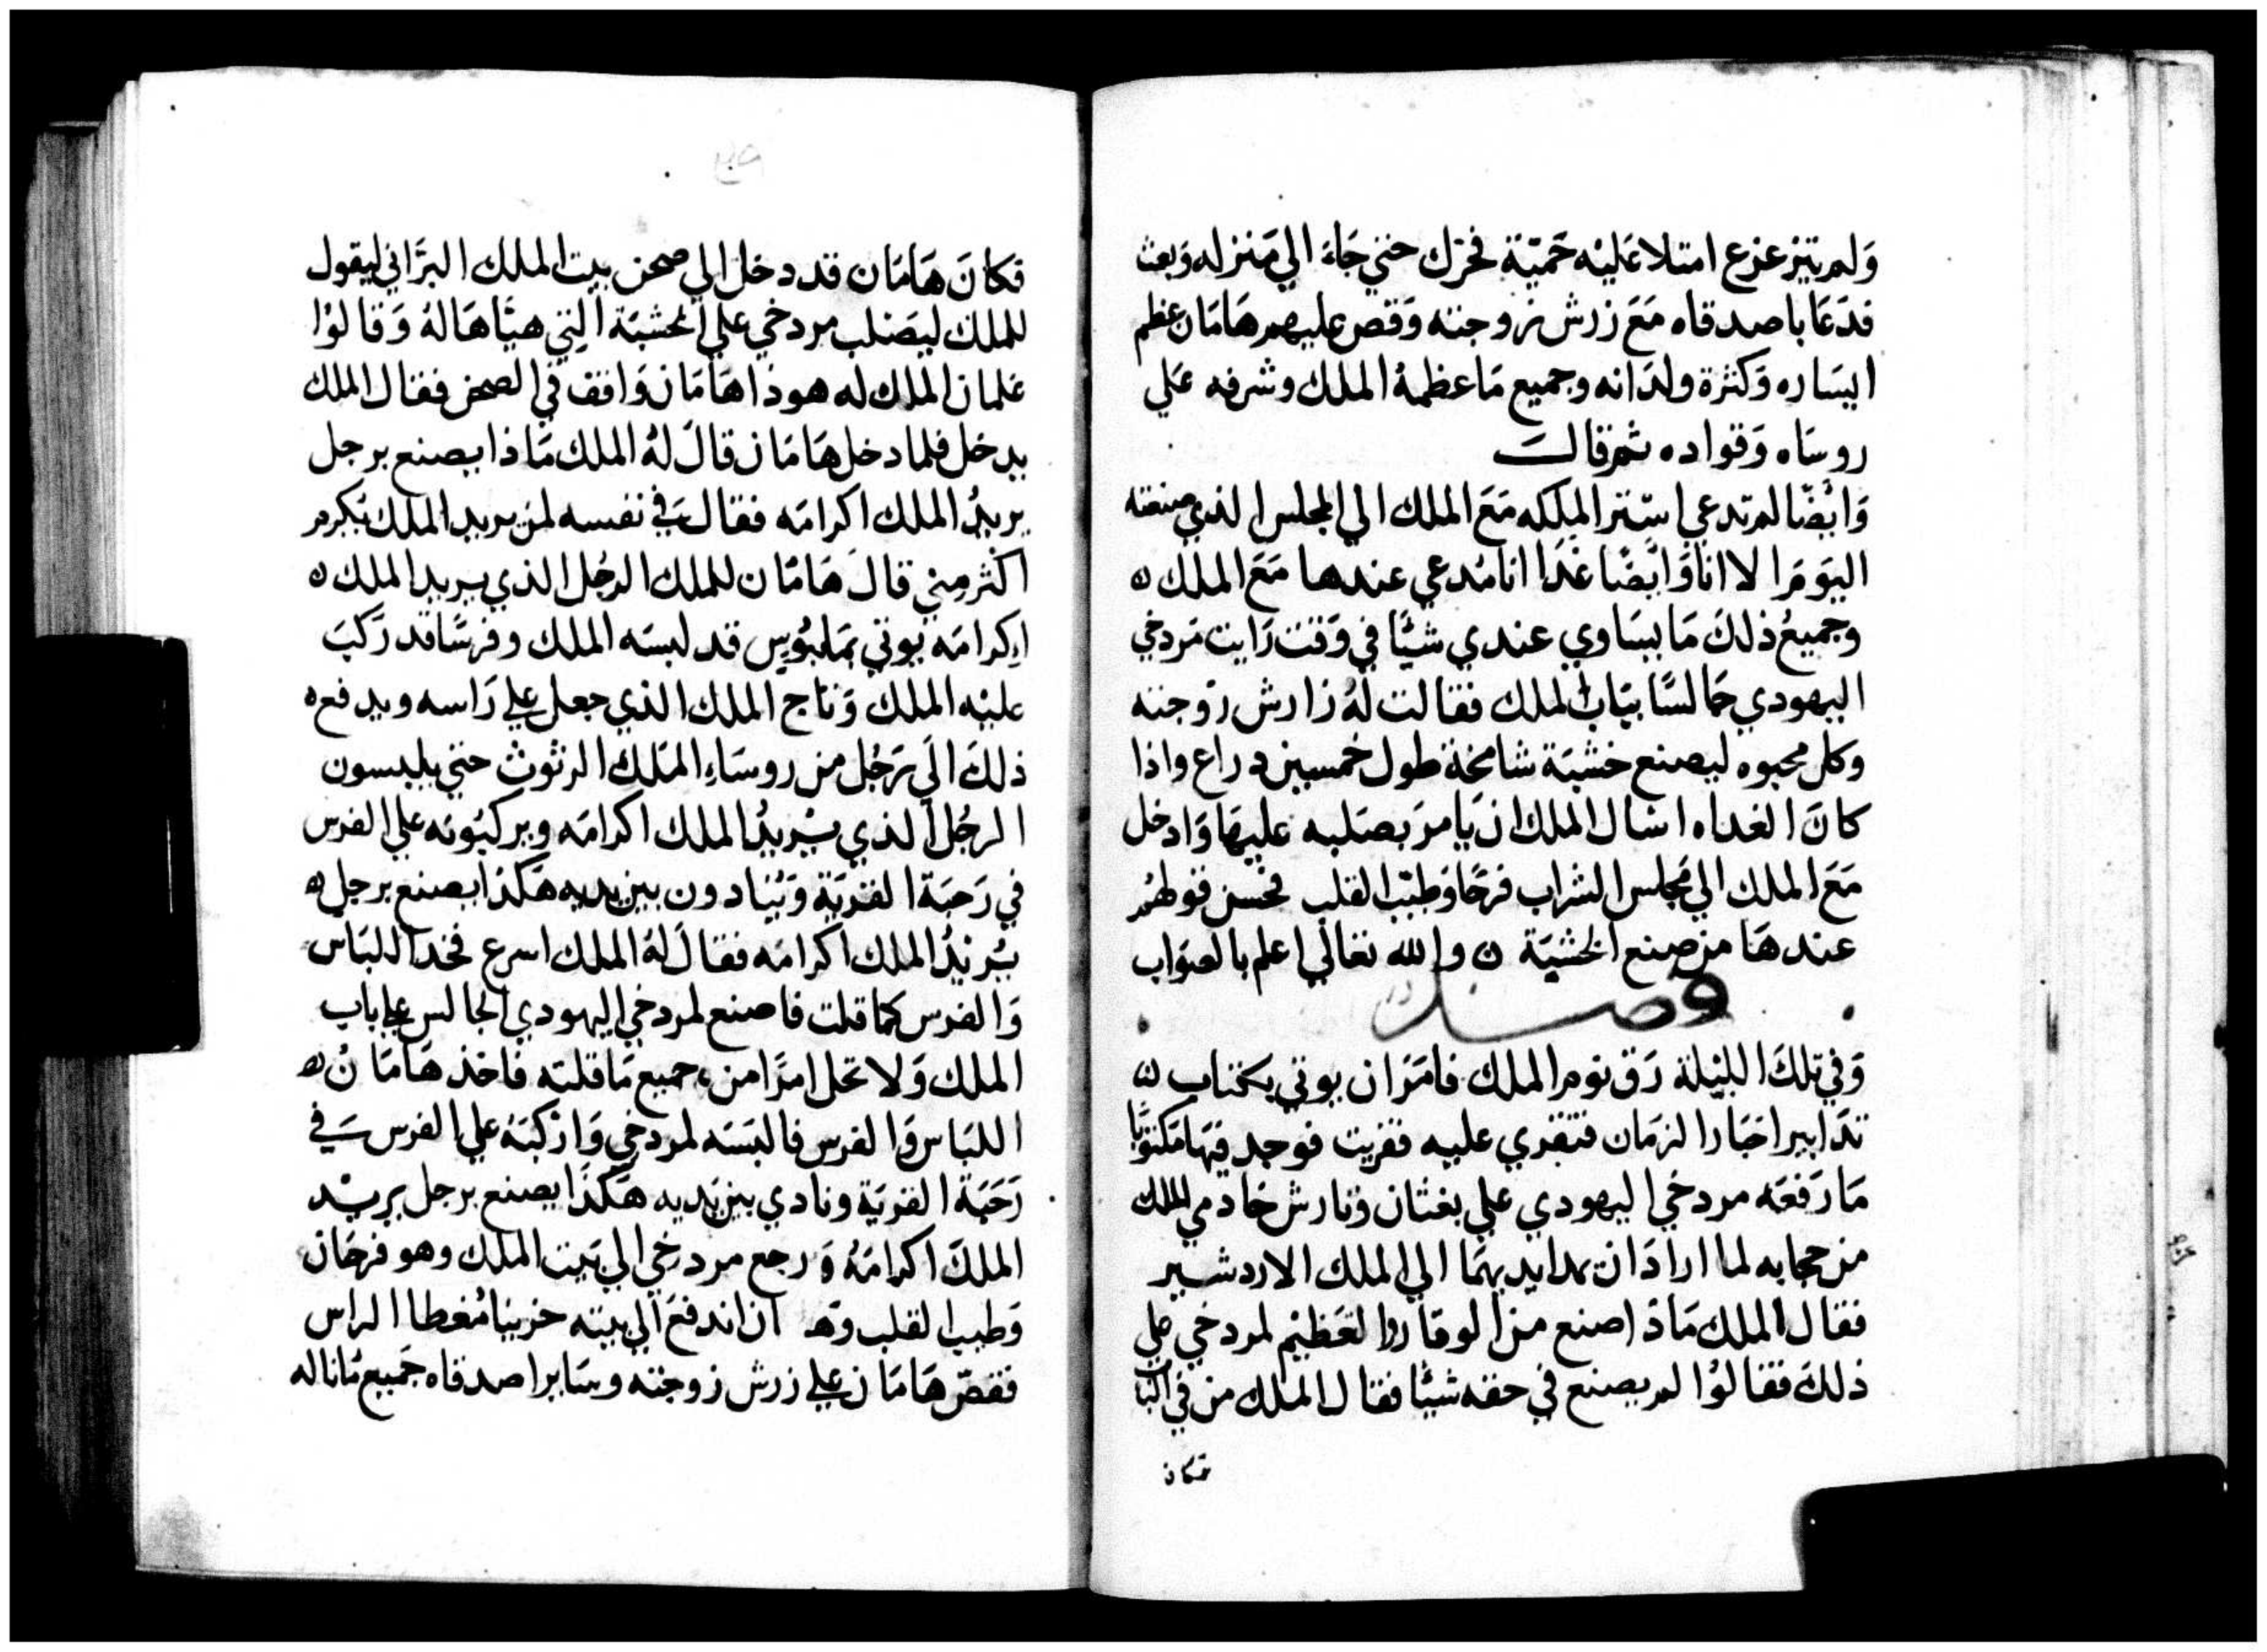 وَلم يتزعزع امتلا عَليْه حَميّة فخرك حتي جَاءَ الي مَنزله وَبعث
فدَعَا باصدقاه مَعَ زرش زوجته وَقص عليهم هَامَان عظم
ايسَاره وَكثرة ولدَانه وجميع مَا عظمهُ الملك وشرفه عَلي
روسَاه وَقواده ثم قالت
وَايْضًا لم تدعي استير الملكه مَعَ الملك الي المجلس الذي صنعته
اليَومَ الا انا وَايْضًا غَدَا انا مُدعي عندها مَعَ الملك ن
وجميعُ ذلكَ مَا يسَاوي عندي شيًا في وَقت رَايت مَردخي
اليهودي جَالسًا ببَاب الملك فقالت لهُ زارش زوجته
وكل محبوه ليصنع خشبَة شامخة طول خمسين دراع واذا
كانَ الغداه اسَال الملك ان يَامرَ بصَلبه عليهَا وَادخل
مَعَ الملك الي مجلس الشراب فرحًا وَطيّب القلب فحسن قولهُم
عندهَا من صنع الخشبَة ن والله تعالي اعلم بالصوَاب
فصل
وَفي تلكَ الليْلة رَق نوم الملك فامَرَ ان يوتي بكتاب ن
تدَابير اخبَار الزمَان فتقري عليه فقريت فوجد فيهَا مَكتوبًا
مَا رَفعَه مردخي اليهودي علي بغثان وتارش خادمي الملك
من حجابه لما ارادَا ان يمدا يديهمَا الي الملك الاردشير
فقال الملك مَاذا صنع من الوقار والعَظيْم لمردخي علي
ذلكَ فقالوُا لم يصنع في حقه شيئًا فقال الملك من في البَاب
فكان
فكانَ هَامَان قد دخل الي صحن بيت الملك البرَّاني ليقول
للملك ليَصَلب مردخي علي الخشبَة التِي هيّاهَا لهُ وَقالوُا
غلمان الملك له هوذا هَامَان وَاقف في الصحن فقال الملك
يدخل فلما دخل هَامَان قالَ لهُ الملك مَاذا يصنع برجل
يريْدُ الملك اكرامَه فقال في نفسه لمن يريد الملك يُكرم
اكثر مِني قالَ هَامَان للملك الرجُل الذي يريد الملك ن
اِكرامَه يوتي بمَلبُوس قد لبسَه الملك وفرسًا قد رَكبَ
عليْه الملك وَتاج الملك الذي جعل علي رَاسه ويدفع ه
ذلكَ الَي رَجُل من روسَاءِ المَلك الرثوث حتي يلبسون
الرجُل الذي يُريْدُ الملك اكرامَه ويركبُونه علي الفرس
في رَحبَة القريَة وَيُنادون بين يديه هَكذا يصنع برجل ه
يُريْدُ الملك اكرامَه فقالَ لهُ الملك اسرع فخد اللبَاس
وَالفرس كمَا قلت فاصنع لمردخي اليهودي الجالس علي باب
الملك وَلا تخل امرًا من جميع مَا قلته فاخذ هَامَانُ ه
اللبَاس وَالفرس فالبَسَه لمردخي وَارْكبَهُ علي الفرس في
رَحَبَة القريَة ونادي بين يَديه هَكذَا يصنع برجل يريْد
الملكَ اكرامَهُ وَرجع مردخي الي بَيت الملك وهو فرحَان
وَطيب القلب وَهامان اندفعَ الي بيته حزينا مُغطا الراس
فقصّ هَامَان علي زرش زوجته وسَاير اصدقاه جَميع مَا ناله